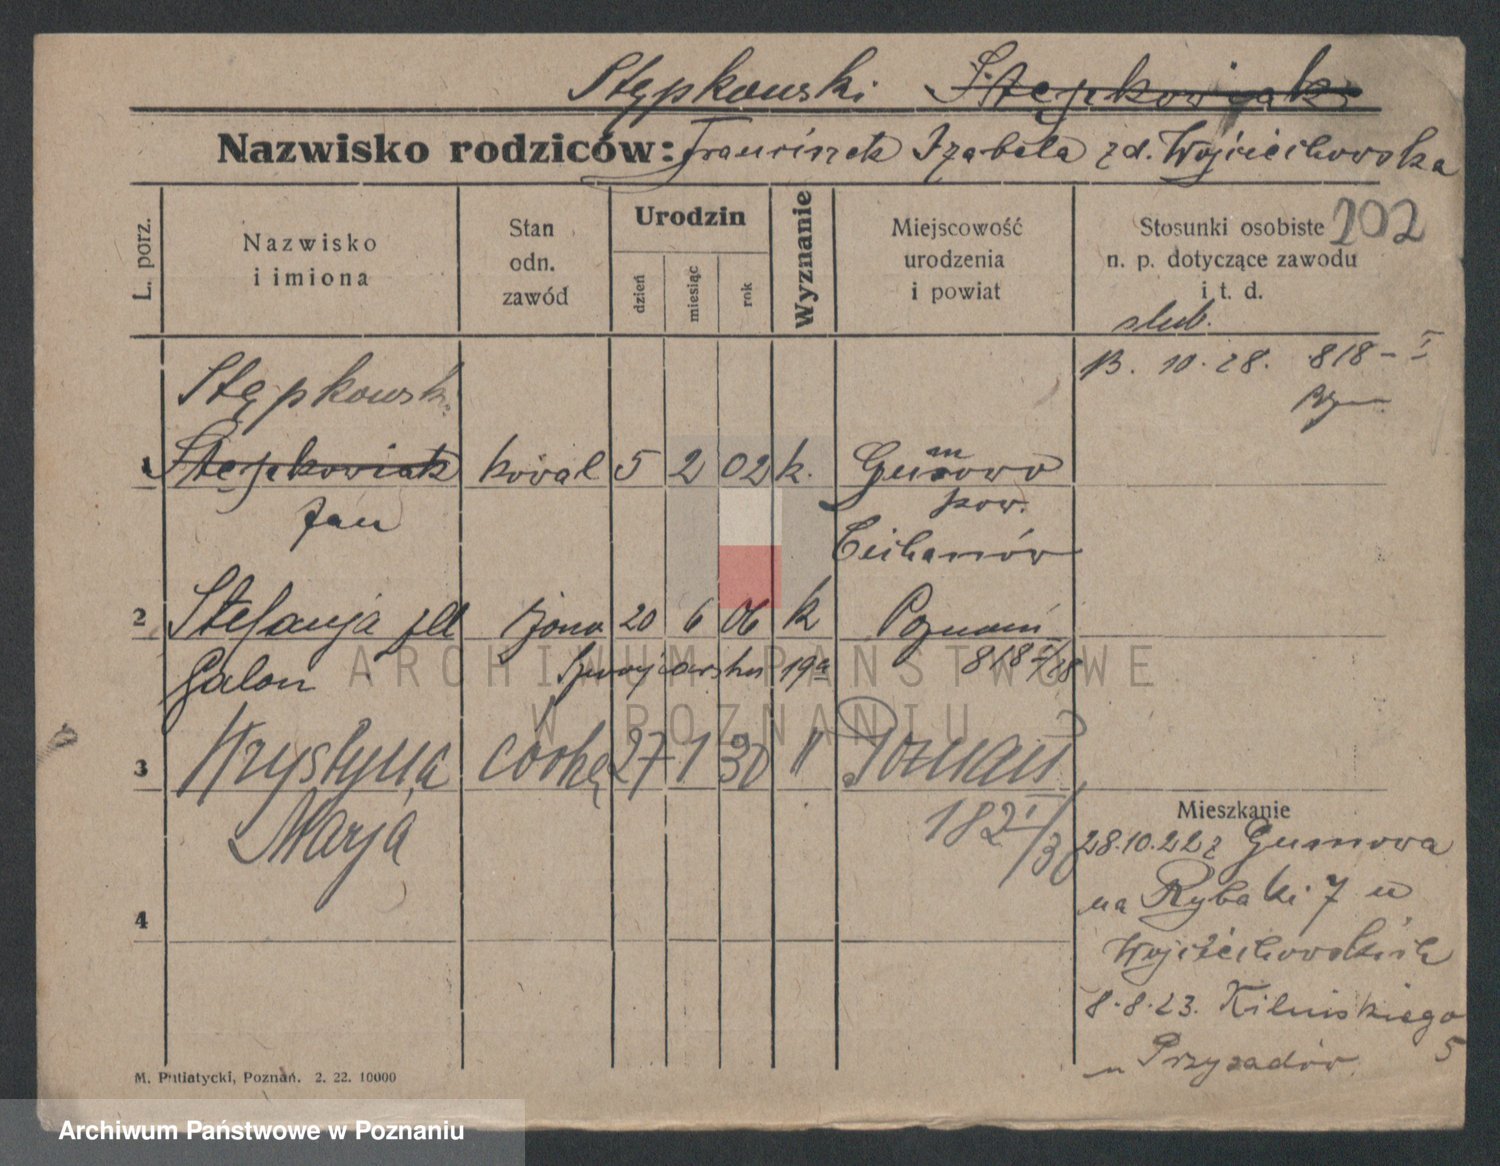 Stępkowski Stępkowiak
Nazwisko rodziców: Franciszek Izabela zd. Wojciechowska
L. porz.
Nazwisko
i imiona
Stan
odn.
zawód
Urodzin
dzień
miesiąc
rok
Wyznanie
Miejscowość
urodzenia
i powiat
Stosunki osobiste 202
n. p. dotyczące zawodu
i t. d.
slub.
13. 10. 28. 818 - I
Stępkowski
1 Stępkowiak kowal 5 2 02 k. Gumowo
Jan
pow.
Ciechanów
2 Stefanja zd żona 20 6 06 k Poznań
Galon 19a 818 I/28
3 Krystyna córka 27 1 30 " Poznań
Marja 182 I/30
Mieszkanie
28.10.22 z Gumowa
na Rybaki 7 u
Wojciechowskich
8.8.23. Kilińskiego 5
u
4
M. Putiatycki, Poznań. 2. 22. 10000
ARCHIWUM PAŃSTWOWE
W POZNANIU
Archiwum Państwowe w Poznaniu